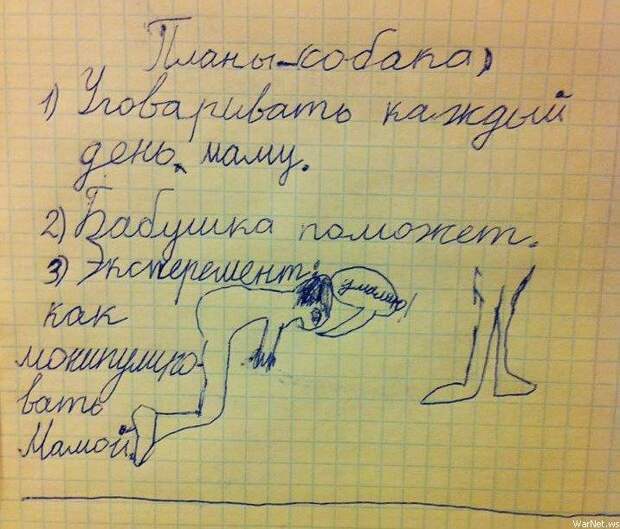 Планы (собака)
1) Уговаривать каждый
день маму.
2) Бабушка поможет.
3) Эксперемент:
умаляю!
как
монипулиро-
вать
Мамой.
WarNet.ws